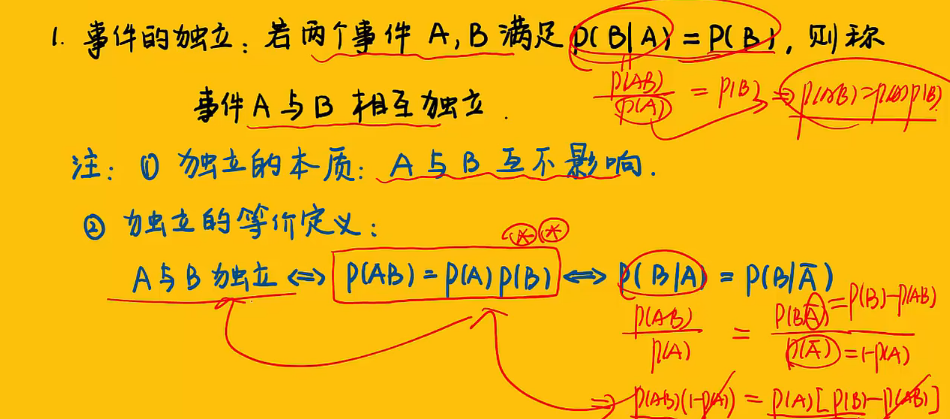 1. 事件的独立：若两个事件 A,B 满足 P(B|A)=P(B)，则称
P(AB)/P(A) = P(B) ⇒ P(AB)=P(A)P(B)
事件A与B 相互独立.
注：① 独立的本质：A与B 互不影响.
② 独立的等价定义：
A与B独立 ⇔ P(AB)=P(A)P(B) ⇔ P(B|A) = P(B|Ā)
P(AB)/P(A) = P(BĀ)/P(Ā)
=P(B)-P(AB)
=1-P(A)
⇒ P(AB)(1-P(A)) = P(A)[P(B)-P(AB)]